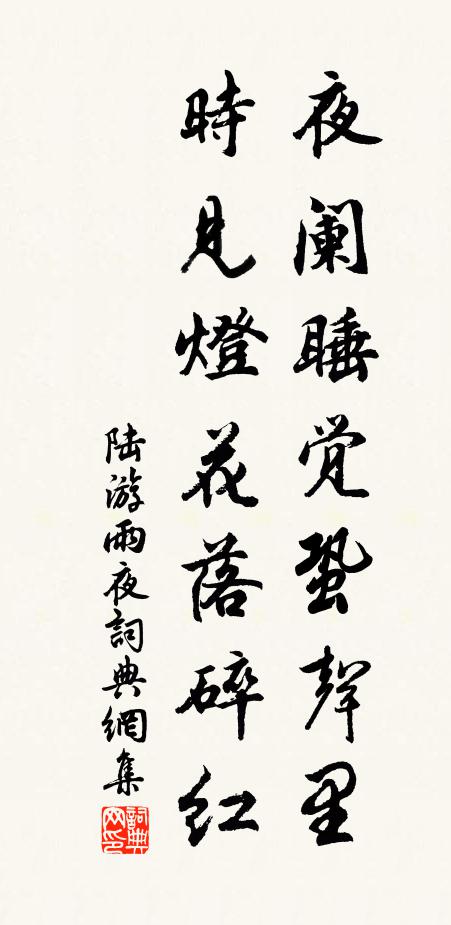 夜阑睡觉蛩聲里
時見燈花落碎紅
陆游雨夜詞典網集
詞典网印